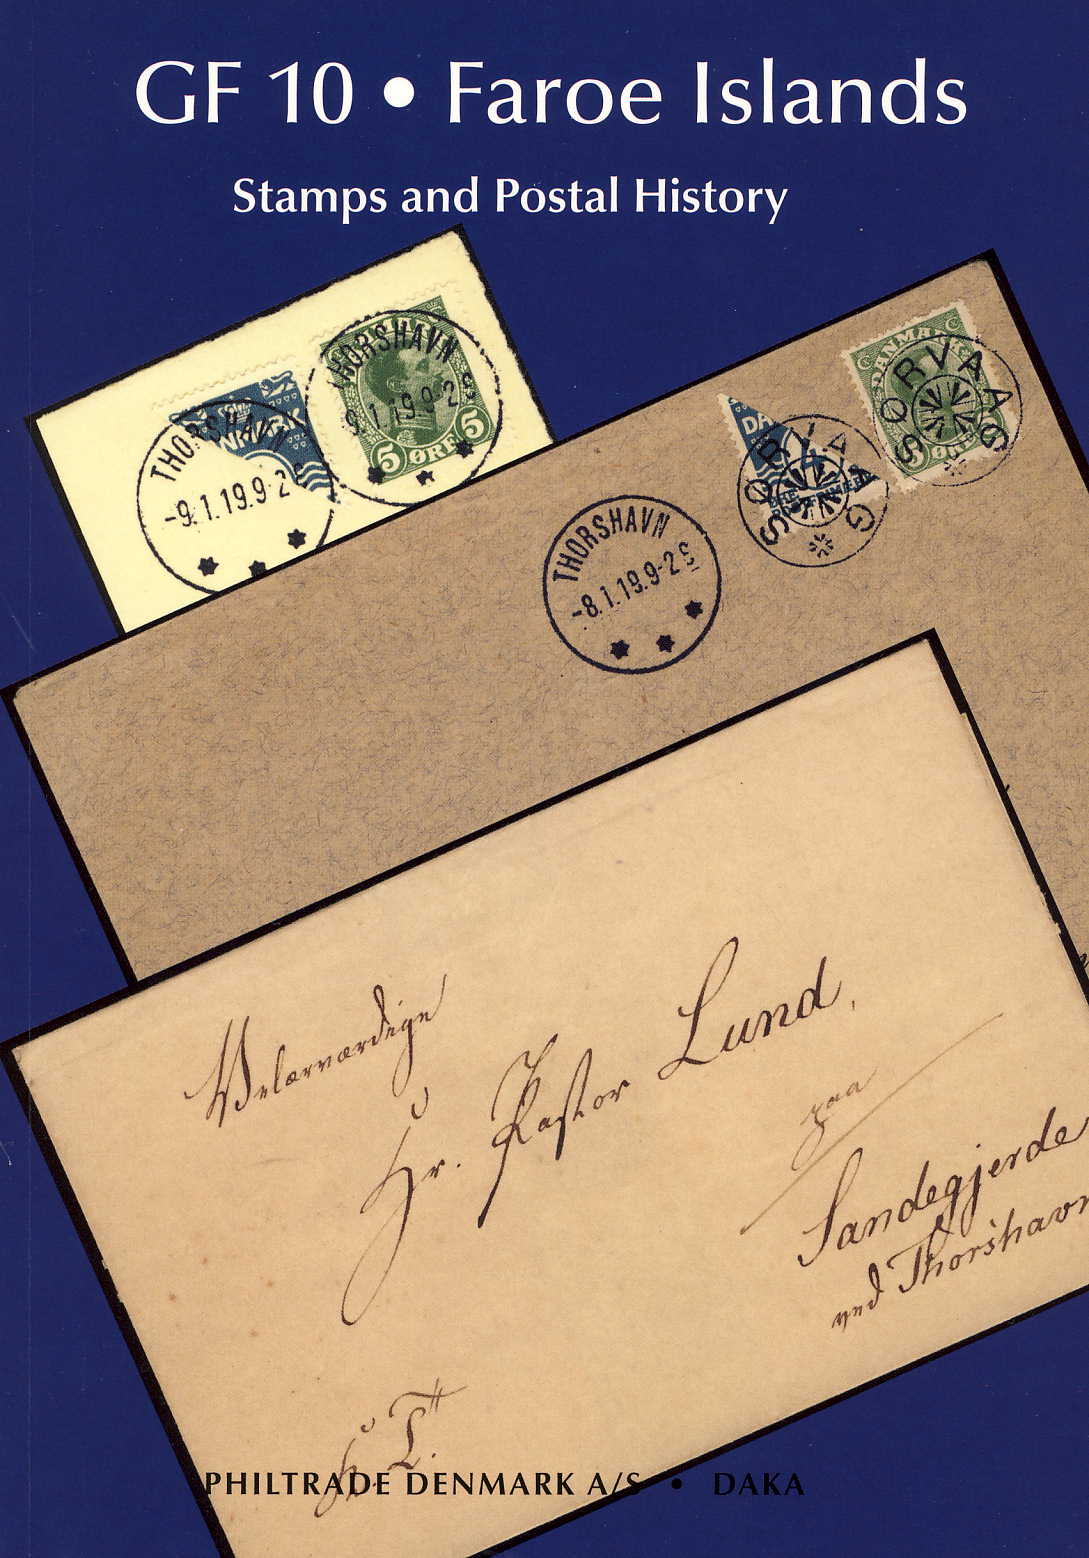 GF 10 • Faroe Islands
Stamps and Postal History
THORSHAVN
-9.1.19.9-2 S
NMARK
THORSHAVN
9.1.19.9-2 S
5 ØRE 5
THORSHAVN
-8.1.19.9-2 S
SORVAAG
DA
SORVAAG
DANMARK
5 ØRE
Velærværdige
Hr. Pastor Lund,
paa
Sandegjerde
ved Thorshavn
h. T.
PHILTRADE DENMARK A/S • DAKA